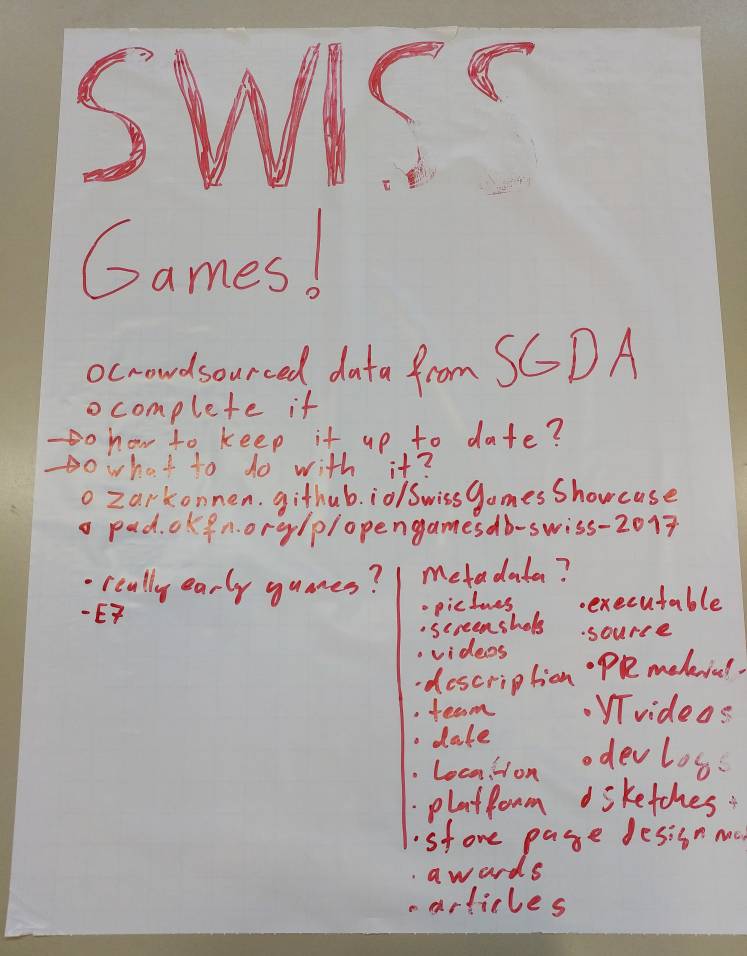 SWISS
Games!
o crowdsourced data from SGDA
o complete it
→ o how to keep it up to date?
→ o what to do with it?
o zarkonnen.github.io/SwissGamesShowcase
o pad.okfn.org/p/opengamesdb-swiss-2017
· really early games?
- E7
Metadata?
· pictues
· screenshots
· videos
· description
· team
· date
· Location
· platform
· store page design
· awards
· articles
· executable
· source
· PR material
· YT videos
o dev Logs
o sketches +